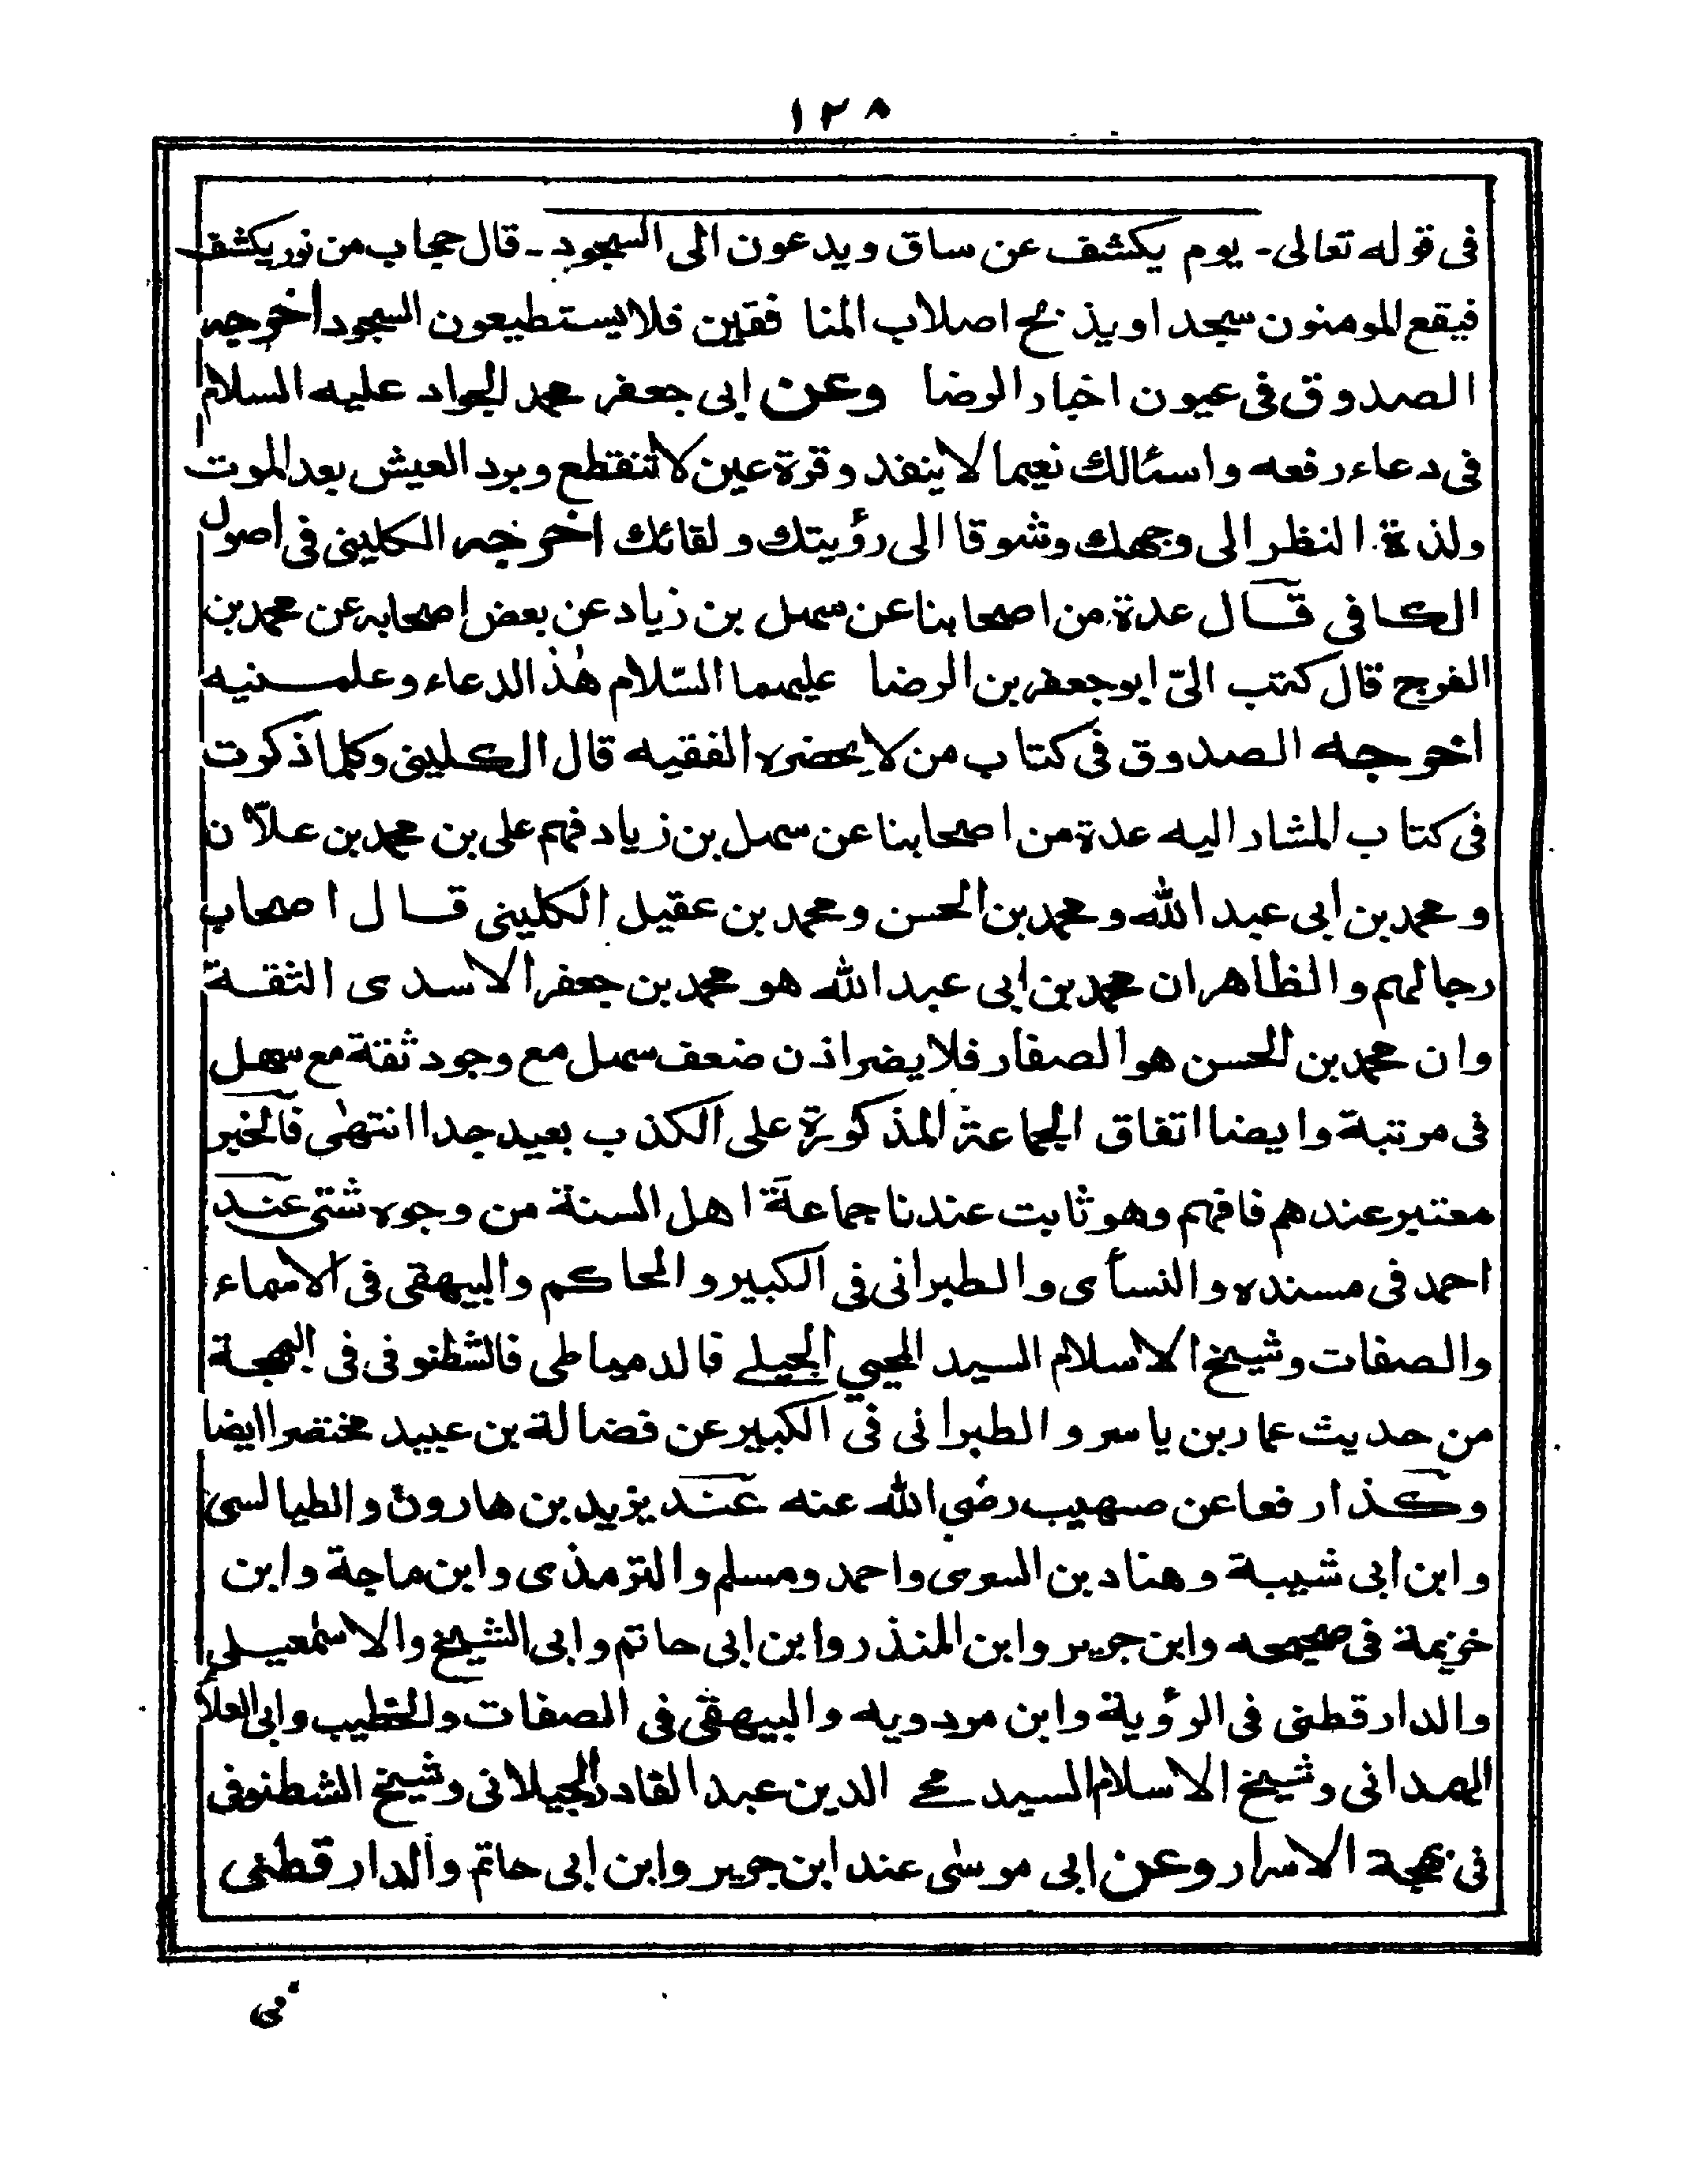 ١٢٨
فى قوله تعالى۔ يوم يكشف عن ساق ويدعون الى السجود۔ قال حجاب من نور يكشف
فيقع المومنون سجدا ويذبح اصلاب المنافقين فلا يستطيعون السجود اخرجه
الصدوق فى عيون اخبار الرضا وعن ابى جعفر محمد الجواد عليه السلام
فى دعاء رفعه واسئالك نعيما لا ينفد وقرة عين لا تنقطع وبرد العيش بعد الموت
ولذة النظر الى وجهك وشوقا الى رؤيتك ولقائك اخرجه الكلينى فى اصول
الكافى قال عدة من اصحابنا عن سهل بن زياد عن بعض اصحابه عن محمد بن
الفرج قال كتب الىّ ابو جعفر بن الرضا عليهما السّلام هٰذ الدعاء وعلمنيه
اخرجه الصدوق فى كتاب من لا يحضره الفقيه قال الكلينى وكلما ذكرت
فى كتاب المشار اليه عدة من اصحابنا عن سهل بن زياد فهم على بن محمد بن علآن
ومحمد بن ابى عبد الله ومحمد بن الحسن ومحمد بن عقيل الكلينى قال اصحاب
رجالهم والظاهر ان محمد بن ابى عبد الله هو محمد بن جعفر الاسدى الثقة
وان محمد بن الحسن هو الصفار فلا يضر اذن ضعف سهل مع وجود ثقة مع سهل
فى مرتبة وايضا اتفاق الجماعة المذكورة على الكذب بعيد جدا انتهٰى فالخبر
معتبر عندهم فافهم وهو ثابت عندنا جماعة اهل السنة من وجوه شتى عند
احمد فى مسنده والنسأى والطبرانى فى الكبير والحاكم والبيهقى فى الاسماء
والصفات وشيخ الاسلام السيد المحيي الجيلے فالدمياطى فالشطنوفى فى البهجة
من حديث عمار بن ياسر والطبرانى فى الكبير عن فضالة بن عبيد مختصرا ايضا
وكذا رفعا عن صهيب رضى الله عنه عند يزيد بن هارون والطيالسى
وابن ابى شيبة وهناد بن السرى واحمد ومسلم والترمذى وابن ماجة وابن
خزيمة فى صحيحه وابن جرير وابن المنذر وابن ابى حاتم وابى الشيخ والاسمٰعيلى
والدارقطنى فى الرؤية وابن مردويه والبيهقى فى الصفات والخطيب وابى العلآ
الهمدانى وشيخ الاسلام السيد محے الدين عبد القادر الجيلانى وشيخ الشطنوفى
فى بهجة الاسرار وعن ابى موسٰى عند ابن جرير وابن ابى حاتم والدارقطنى
فى